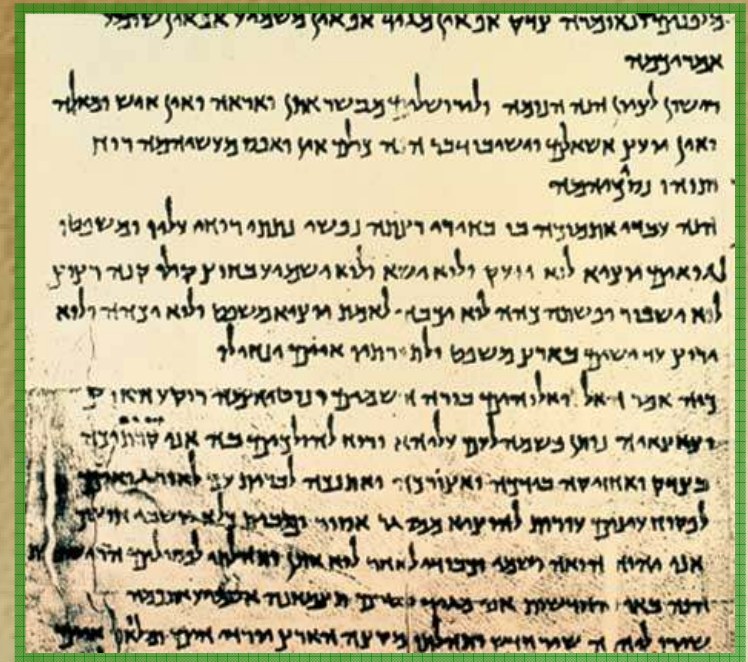 מלפנים ונאומרה צדיק אף אין מגיד אף אין משמיע אף אין שומע
אמריכמה
לציון הנה הנומה ולירושלים מבשר אתן ואראה ואין איש ומאלה
ואין יועץ אשאלם וישיבו דבר הנה כולם אין ואפס מעשיהמה רוח
ותוהו נסכיהמה
הנה עבדי אתמוכה בו בחירי רצתה נפשי נתתי רוחי עליו ומשפטו
לגואים יוציא לוא יזעק ולוא ישא ולוא ישמיע בחוץ קולו קנה רצוץ
לוא ישבור ופשתה כהה לוא יכבה לאמת יוציא משפט ולוא יכהה ולוא
ירוץ עד ישים בארץ משפט ולתורתיו איים ינחילו
כוה אמר האל ואלוהים בורה השמים ונוטיהמה רוקע הארץ
וצאצאיה נותן נשמה לעם עליהא ורוח להולכים בה אני קרתיכה
בצדק ואחזיקה בידכה ואצורכה ואתנכה לברית עם לאור גואים
לפקוח עינים עורות להוציא ממסגר אסיר ומבית כלא יושבי חושך
אני יהוה הואה ושמי וכבודי לאחר לוא אתן ותהלתי לפסילים
הנה באו והחדשות אני מגיד בטרם תצמחנה אשמיע אתכמה
שירו ליהוה שיר חדש ותהלתו מקצה הארץ יורדי הים ומלואו איים